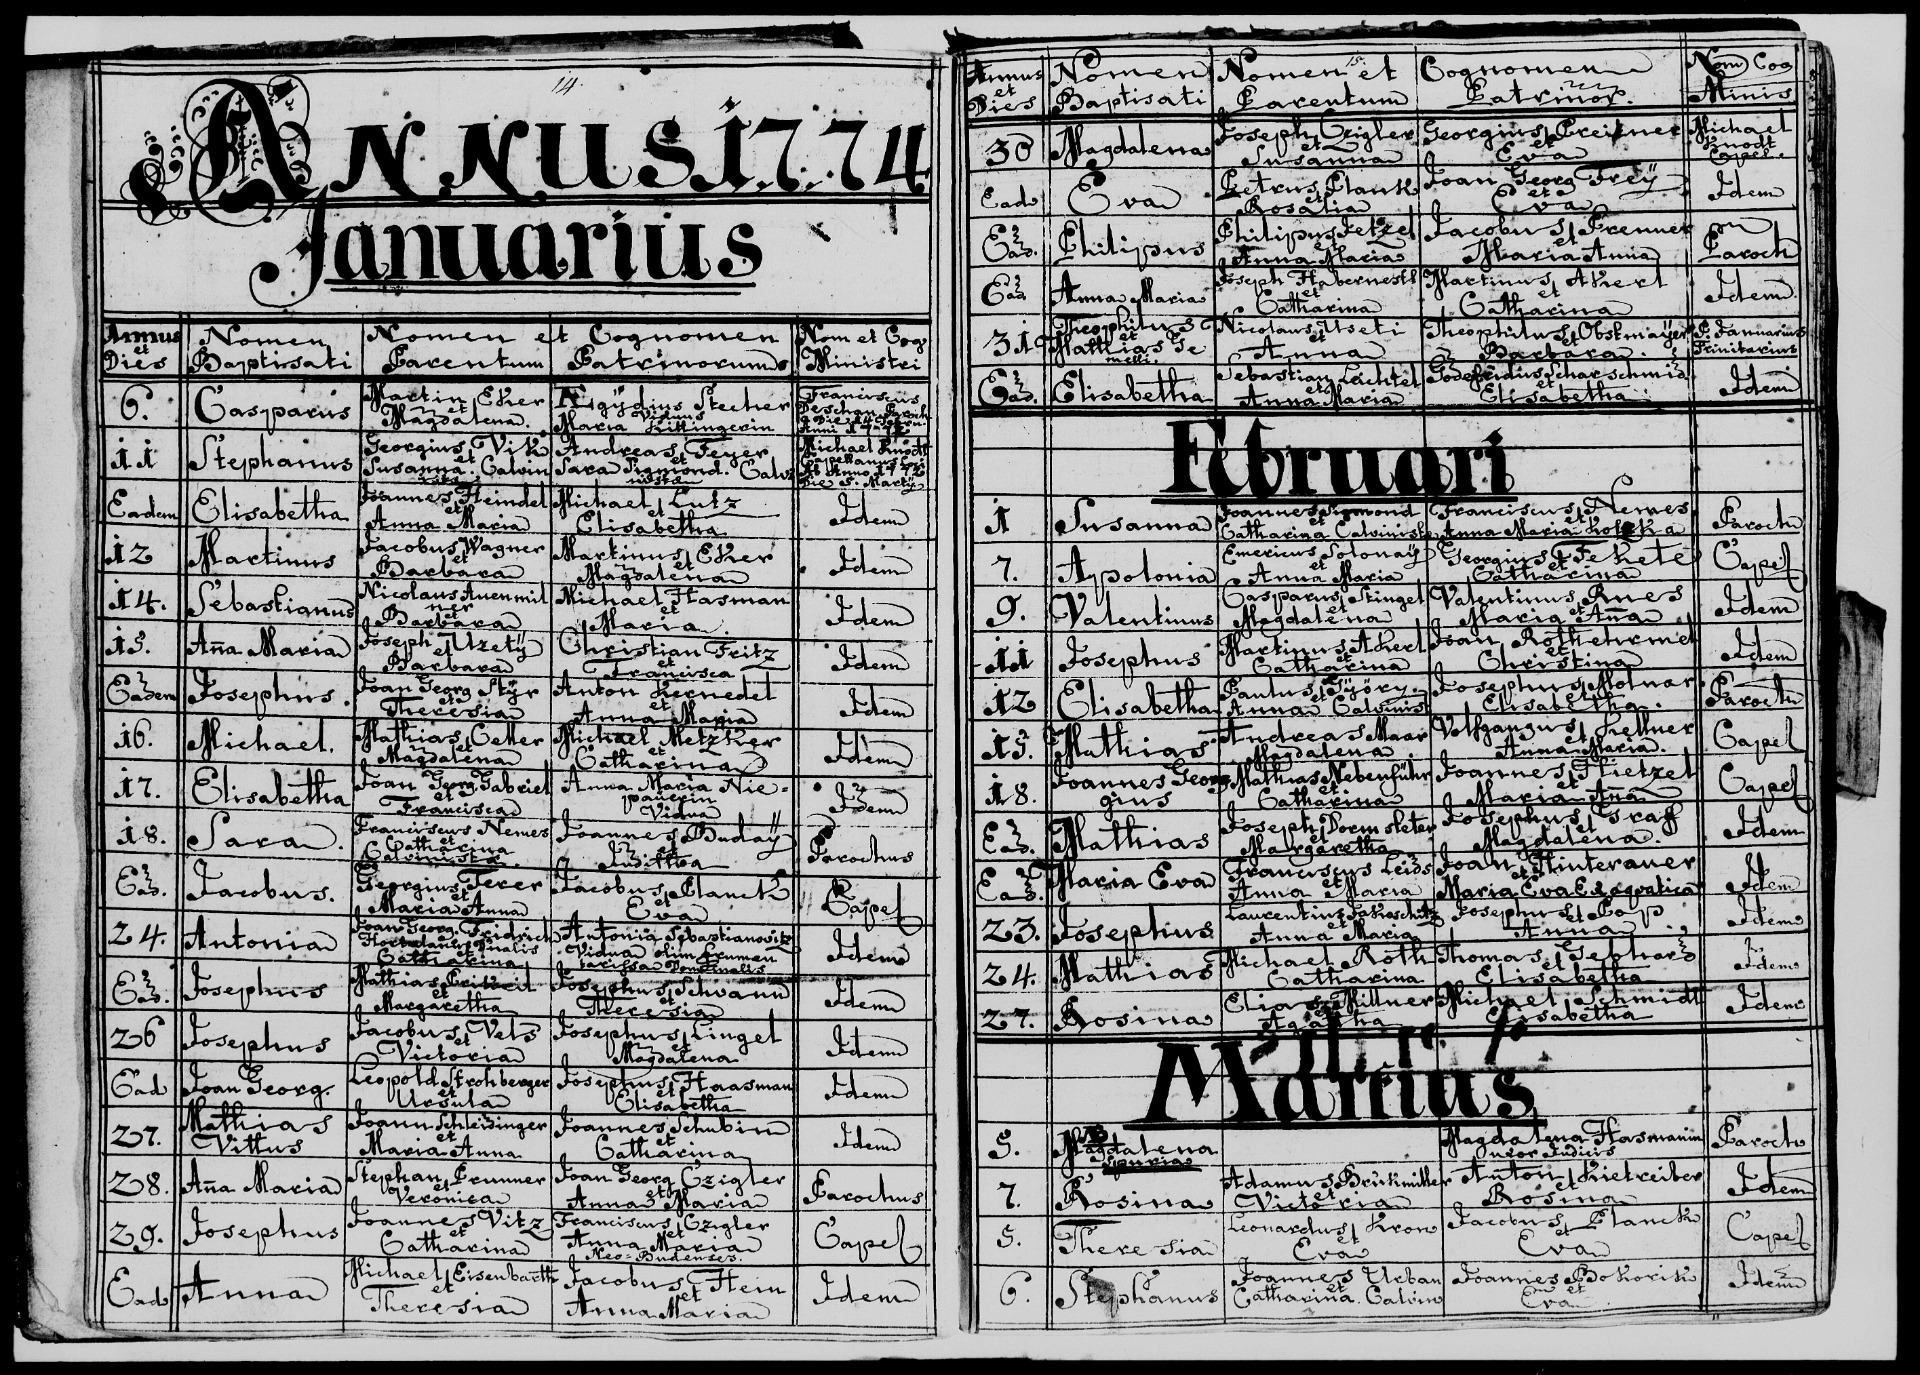 14.
ANNUS. 1774
Januarius
Annus et Dies | Nomen Baptisati | Nomen et Cognomen Parentum | Patrinorum | Nom et Cog Ministri
6. | Casparus | Martin Eker et Magdalena. | Egÿdius Stecher Viduus Maria Kittingerin | Franciscus Deschan Paroch
11 | Stephanus | Georgius Vik et Susanna. Calvin | Andreas Feyer et Sara Sigmond. Calv | Michael Knodt Capellanus
Eadem | Elisabetha | Joannes Heindel et Anna Maria | Michael Lutz et Elisabetha | Idem
12 | Martinus | Jacobus Wagner et Barbara | Martinus Eker et Magdalena | Idem
14. | Sebastianus | Nicolaus Auenmil ner et Barbara | Michael Hasman et Maria | Idem
15. | Aña Maria | Joseph Uzetÿ et Barbara | Christian Fritz et Francisca | Idem
Eadem | Josephus. | Joan Georg Stÿr et Theresia | Anton Kernedel et Anna Maria | Idem
16. | Michael. | Mathias Oeller et Magdalena | Michael Metzker et Catharina | Idem
17. | Elisabetha | Joan Georg Gabriel et Francisca | Anna Maria Nie= paüerin Vidua | Idem
18. | Sara. | Franciscus Nemes et Catharina Calvinista. | Joannes Budaÿ et Juditha | Parochus
Ead. | Jacobus. | Georgius Ferer et Maria Anna | Jacobus Planck et Eva | Capel
24. | Antonia | Joan Georg Fridrich et Catharina | Antonia Sebastianovitz Vidua olim Frumen tarissa Dominalis | Idem
Ead. | Josephus | Mathias et Margaretha | Josephus Schvann et Theresia | Idem
26 | Josephus | Jacobus Vels et Victoria | Josephus Lingel et Magdalena | Idem
Ead | Joan Georg. | Leopold Strohberger et Ursula | Josephus Haasman et Elisabetha | Idem
27. | Mathias Vittus | Joann Schleidinger et Maria Anna | Joannes Schubin et Catharina | Idem
28. | Aña Maria | Stephan Prunner et Veronica | Joan Georg Czigler et Anna Maria | Parochus
29. | Josephus | Joannes Vitz et Catharina | Franciscus Czigler et Anna Maria Neo=Budenses. | Capel
Ead | Anna | Michael Eisenbarth et Theresia | Jacobus Hein et Anna Maria | Idem
15.
Annus et Dies | Nomen Baptisati | Nomen et Parentum | Cognomen Patrinor. | Nom Cog Minis
30 | Magdalena | Joseph Czigler et Susanna | Georgius Preisner et Eva | Michael Knodt Capel.
Ead | Eva | Petrus Plank et Rosalia | Joan Georg Freÿ et Eva | Idem
Ead. | Philipus | Philipus Jetzel et Anna Maria | Jacobus Prenner et Maria Anna | Paroch
Ead | Anna Maria | Joseph Habernestl et Catharina | Martinus Akerl et Catharina | Idem
31 | Theophilus et Mathias Ge melli. | Nicolaus Useti et Anna | Theophilus Obstmaÿer et Barbara. | P. Januarius Trinitarius
Ead. | Elisabetha | Sebastian Leichtel et Anna Maria | Godefridus Scharschmid et Elisabetha | Idem
Februari
1 | Susanna | Joannes Sigmond et Catharina Calvinist | Franciscus Nemes Anna Maria | Paroch
7. | Apolonia | Emericus Solonaÿ et Anna Maria | Georgius Fekete Catharina | Capel
9. | Valentinus | Casparus Stingel et Magdalena | Valentinus Rues et Maria Aña | Idem
11 | Josephus | Martinus Akerl et Catharina | Joan Rothermel et Christina | Idem
12 | Elisabetha | Paulus Győry et Anna Calvinist | Josephus Molnar et Elisabetha. | Paroch
15. | Mathias | Andreas Maar et Magdalena | Volfgangus Kellner et Anna Maria. | Capel
18. | Joannes Geor gius | Mathias Nebenführ et Catharina | Joannes Hietzel et Maria Aña | Capel
Ead. | Mathias | Joseph Dormsleter et Margaretha | Josephus Graff et Magdalena. | Idem
Ead. | Maria Eva | Franciscus Leids et Anna Maria | Joan Hinterauer et Maria Eva | Idem
23. | Josephus | Laurentius Jakoschitz et Anna Maria | Josephus Pap et Anna | Idem
24. | Mathias | Michael Roth et Catharina | Thomas Gebhard et Elisabetha | Idem
27. | Rosina | Elias Millner et Agatha | Michael Schmidt et Elisabetha | Idem
Martius
5. | Magdalena Spuria | Magdalena Hasmanin uxor Judicis | Paroch
7. | Rosina | Adamus Brükmiller et Victoria | Anton Kietreiber et Rosina | Idem
5. | Theresia | Leonardus Kron et Eva | Jacobus Planck et Eva | Capel
6. | Stephanus | Joannes Urban et Catharina. Calvin | Joannes Bokorik et Eva | Idem